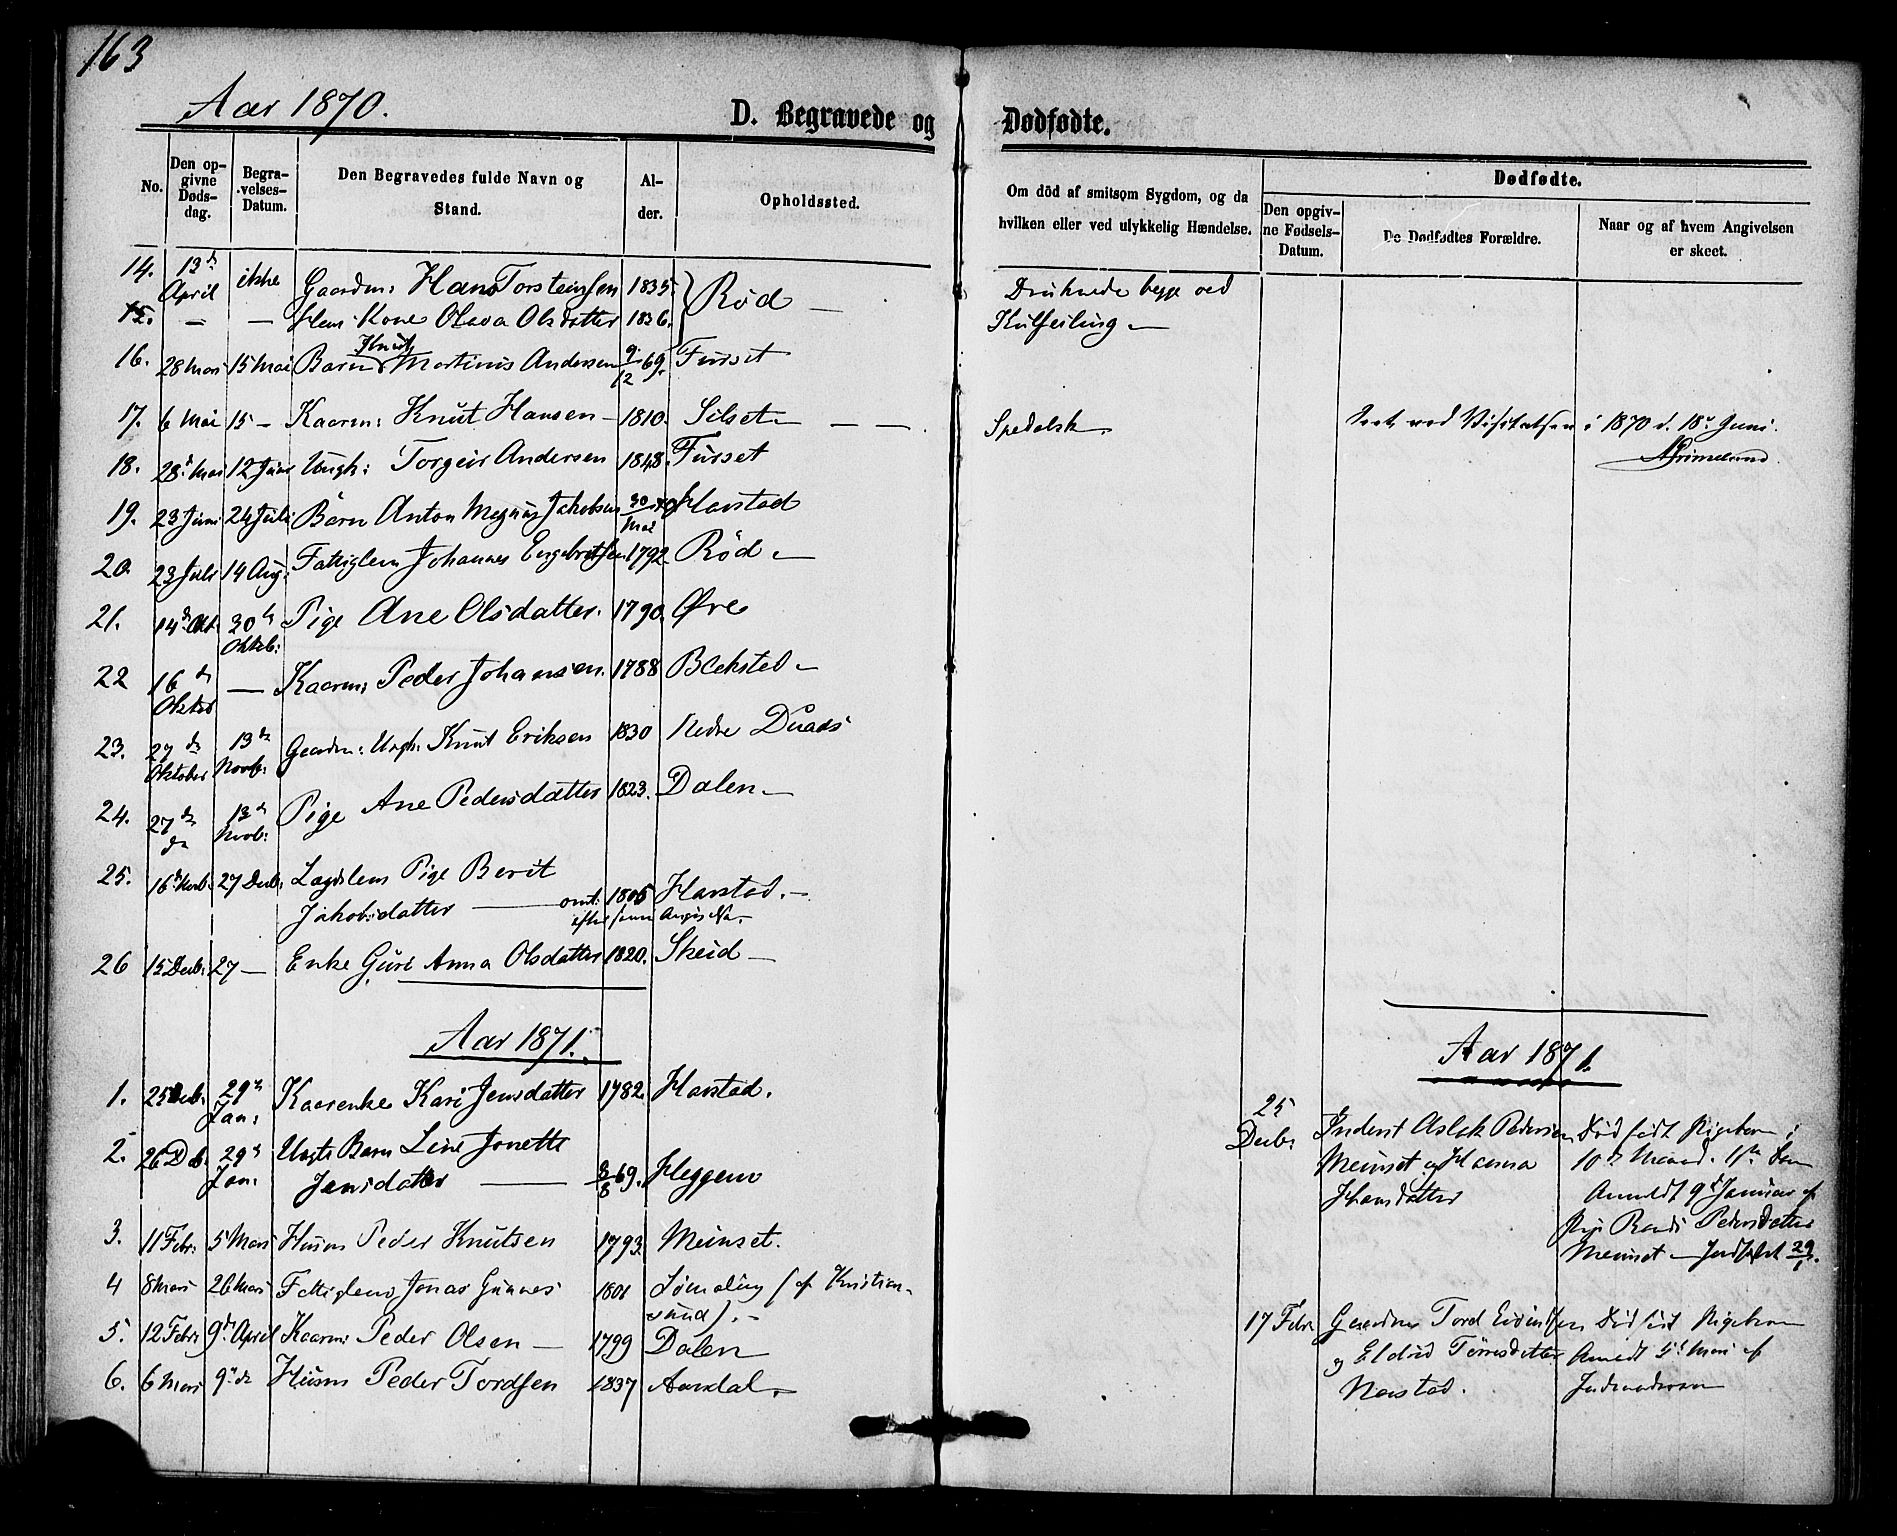 163
Aar 1870.
D. Begravede og Dødfødte.
No.
Den opgivne Dødsdag.
Begravelses-Datum.
Den Begravedes fulde Navn og Stand.
Alder.
Opholdssted.
Om död af smitsom Sygdom, og da hvilken eller ved ulykkelig Hændelse.
Dødfødte.
Den opgivne Fødsels-Datum.
De Dødfødtes Forældre.
Naar og af hvem Angivelsen er skeet.
14. 13de April ikke Gaardm: Hans Torsteinsen 1835. Rød — Druknede begge ved
15. — — Hans Kone Olava Olsdatter 1836. Kulseiling —
16. 28 Mars 15 Mai Barn Knut Martinus Andersen 9/12 69. Furset
17. 6 Mai 15 — Kaarm: Knut Hansen — 1810. Silset — Spedalsk. Seet ved Visitatsen i 1870 d. 18de Juni.
18. 28de Mai 12 Juni Ungk: Torgeir Andersen 1848. Furset AGrimelund
19. 23 Juni 24 Juli Barn Anton Magnus Jakobsen 30/Mai 70 Harstad
20. 23 Juli 14 Aug: Fattiglem Johannes Engebretsen 1792. Rød —
21. 14de Okt. 30te Oktob: Pige Ane Olsdatter. 1790. Øre
22 16de Oktob — Kaarm: Peder Johansen. 1788 Blekstad —
23. 27de Oktober 13de Novb: Gaardm: Ungk: Knut Eriksen 1830 Nedre
24. 27de do 13de Novb: Pige Ane Pedersdatter 1823. Dalen —
25. 16de Novb. 27 Decb: Lægdslem Pige Berit
Jakobsdatter — omt: 1805 Harstad. —
efter
26 15 Decb: 27 — Enke Guri Anna Olsdatter 1820. Skeid —
Aar 1871.
Aar 1871.
1. 25 Decb. 29de Jan: Kaarenke Kari Jensdatter 1782. Harstad.
2. 26 Db. 29de Jan: Barn Line Jonette
Jensdatter — 8/8 69. Heggem
3. 11 Febr. 5 Mars Husm Peder Knutsen 1793. Meinset.
4 8 Mars 26 Mars Fattiglem Jonas Gunnes 1801 (af Kristian-
sund). —
5. 12 Febr 9de April Kaarm: Peder Olsen — 1799 Dalen
6. 6 Mars 9de do Husm Peder Tordsen 1837 Aandal. —
25 Decb: Inderst Aslak Pedersen
Meinset og Hanna
Hansdatter
Død født Pigebarn i
10de Maaned.
Anmeldt 9de Januar af
Pige Randi Pedersdatter
Meinset — Indført 29/1.
17 Febr Gaardm Tord Eivindsen
og Eldrid Tørresdatter
Harstad.
Død født Pigebarn
Anmeldt 5te Mars af
Jordmoderen